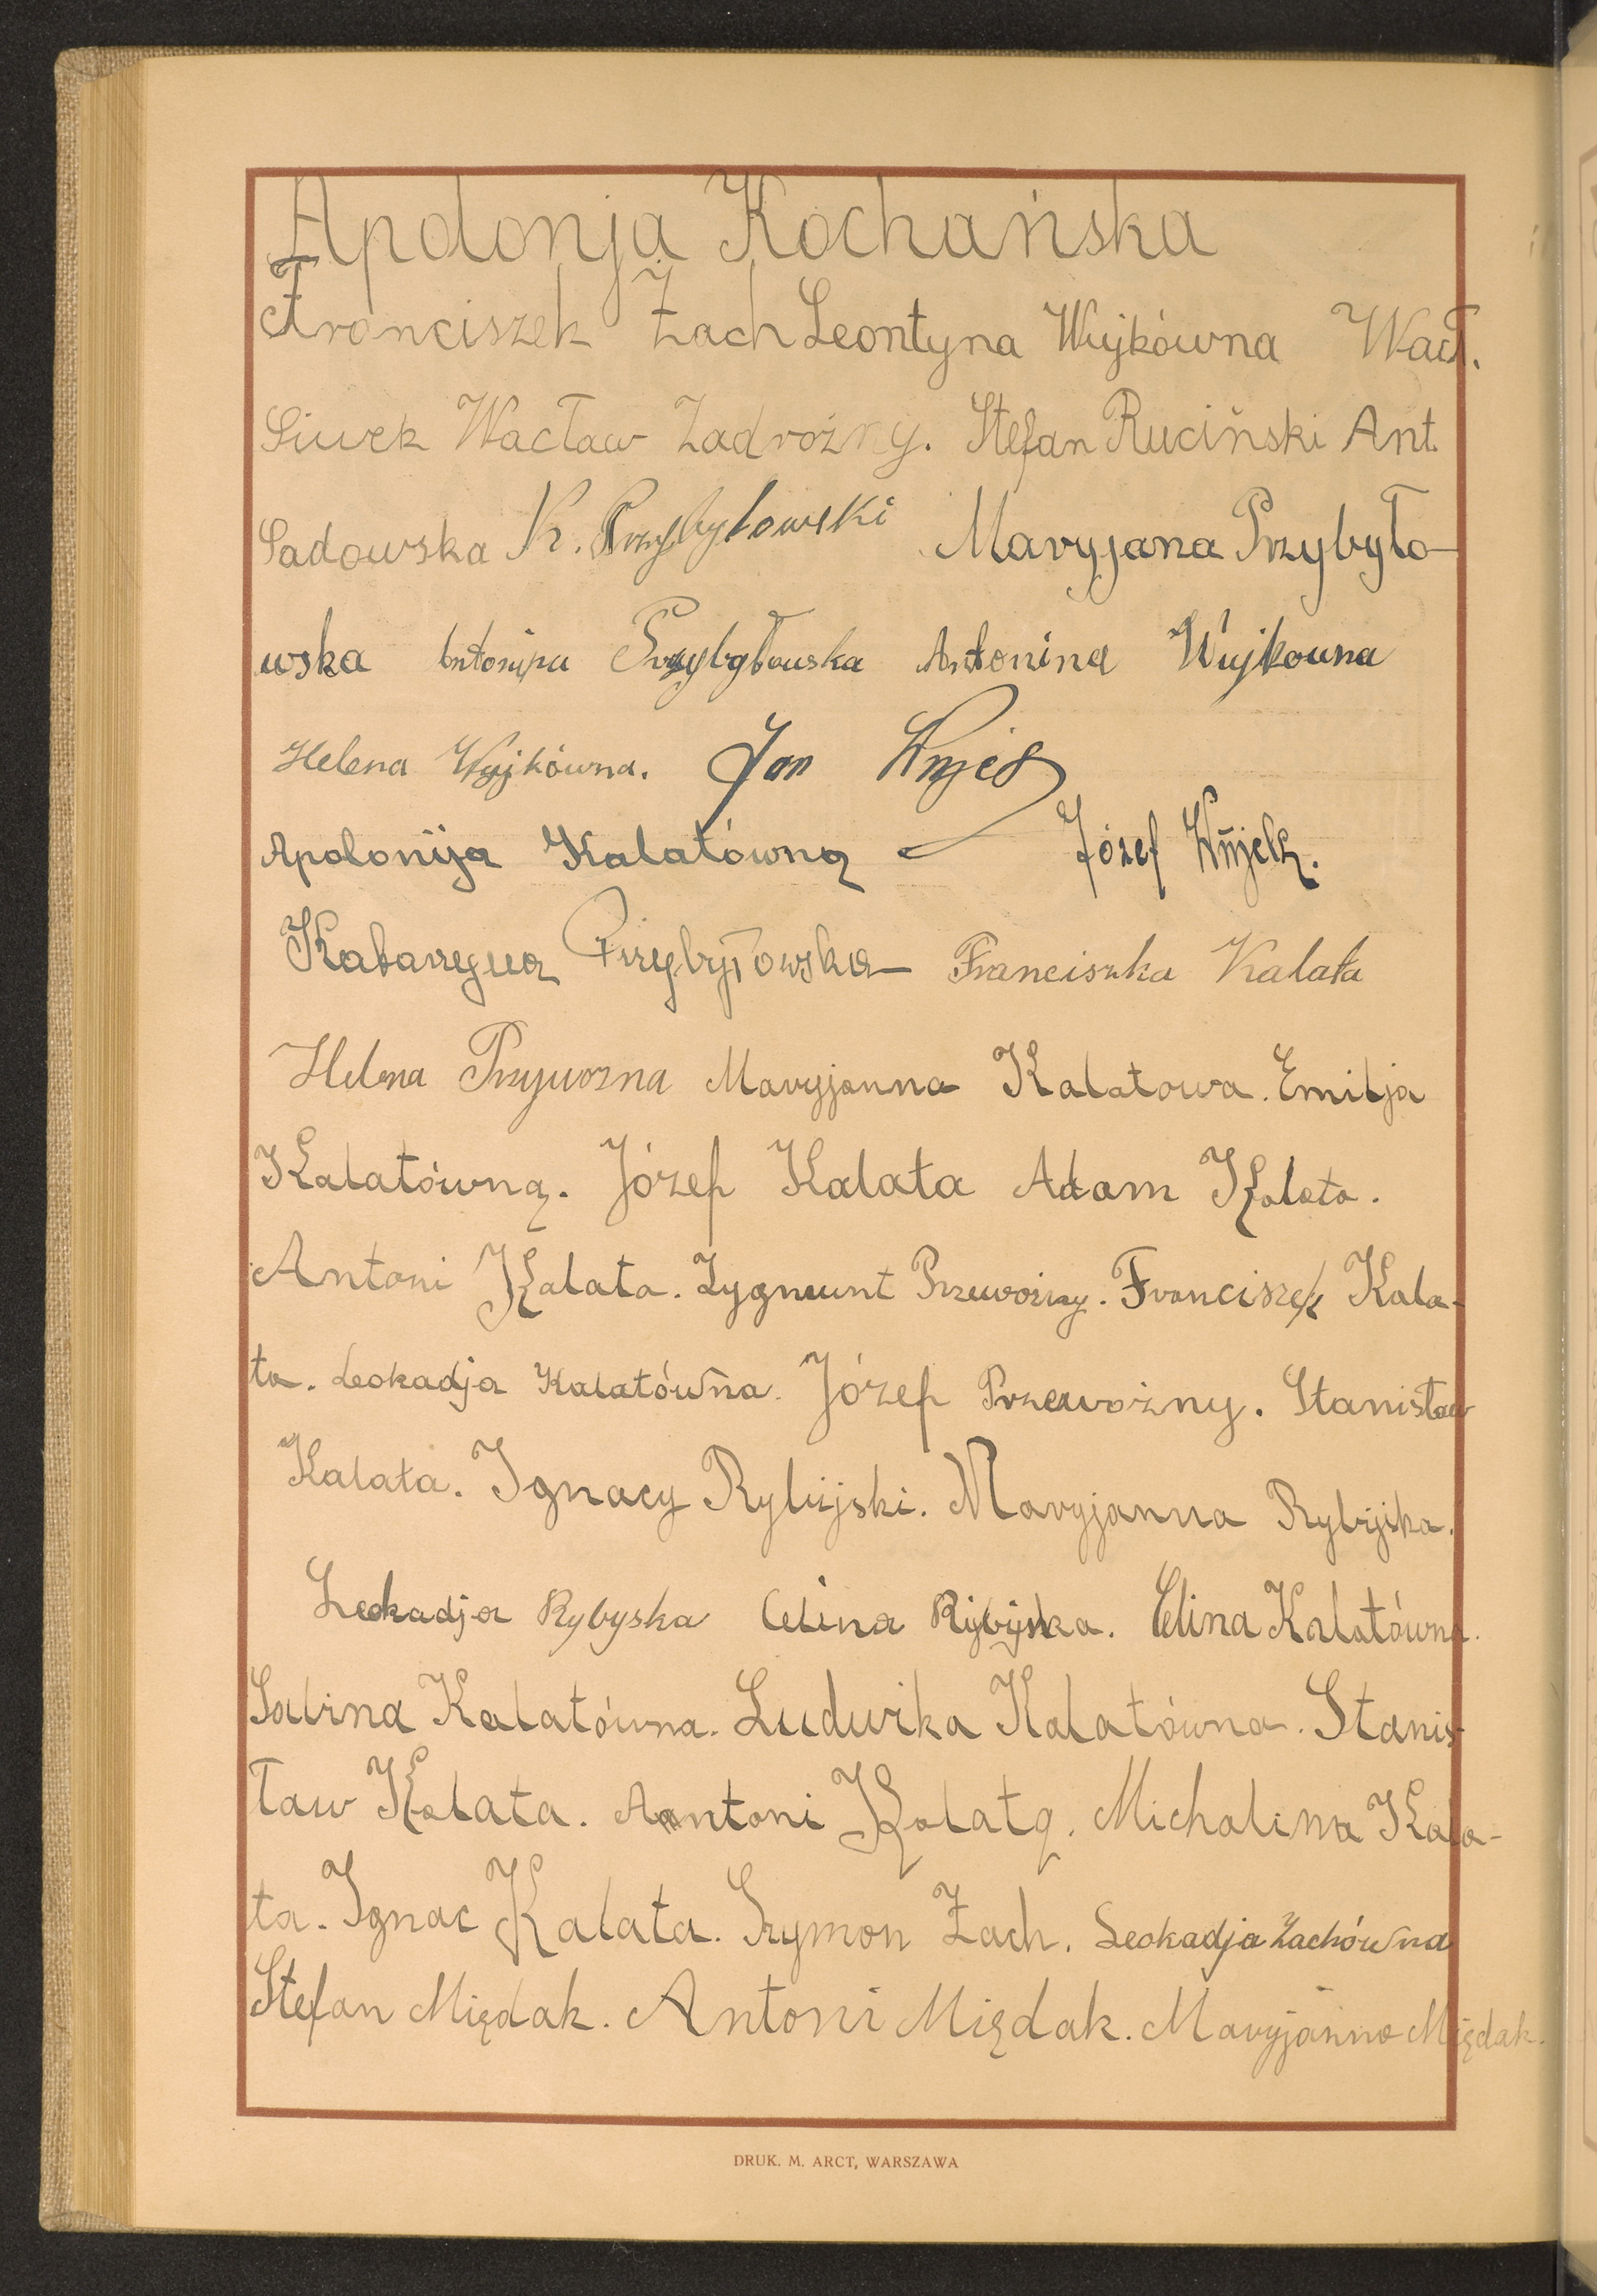 Apolonja Kochańska
Franciszek Żach Leontyna Wujkówna Wacł.
Siwek Wacław Zadrożny. Stefan Ruciński Ant.
Sadowska K. Przybyłowski Maryjana Przybyło-
wska Antonina Przybyłowska Antonina Wujkowna
Helena Wujkówna. Jan Wujek
Apolonija Kalatówna Józef Wujek.
Katarzyna Przybyłowska Franciszka Kalata
Helena Przywozna Maryjanna Kalatowa. Emilja
Kalatówna. Józef Kalata Adam Kalata.
Antoni Kalata. Zygmunt Przewoźny. Franciszek Kala-
ta. Leokadja Kalatówna. Józef Przewoźny. Stanisław
Kalata. Ignacy Rybijski. Maryjanna Rybijska.
Leokadja Rybyska Celina Rybijska. Celina Kalatówna.
Salina Kalatówna. Ludwika Kalatówna. Stanis-
ław Kalata. Antoni Kalata. Michalina Kala-
ta. Ignac Kalata. Szymon Żach. Leokadja Żachówna
Stefan Międak. Antoni Międak. Maryjanna Międak.
DRUK. M. ARCT, WARSZAWA